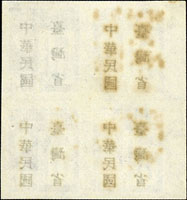 臺灣省
中華民國
臺灣省
中華民國
臺灣省
中華民國
臺灣省
中華民國